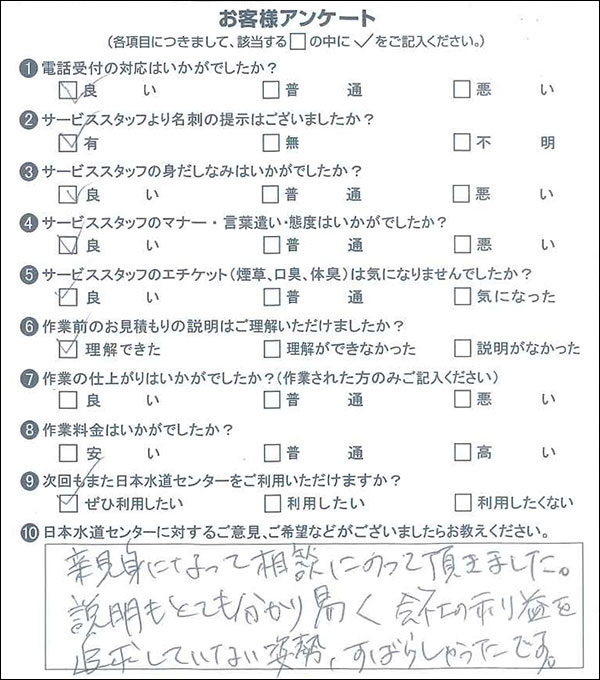 お客様アンケート
(各項目につきまして、該当する□の中に✓をご記入ください。)
❶電話受付の対応はいかがでしたか?
☑良い □普通 □悪い
❷サービススタッフより名刺の提示はございましたか?
☑有 □無 □不明
❸サービススタッフの身だしなみはいかがでしたか?
☑良い □普通 □悪い
❹サービススタッフのマナー・言葉遣い・態度はいかがでしたか?
☑良い □普通 □悪い
❺サービススタッフのエチケット(煙草、口臭、体臭)は気になりませんでしたか?
☑良い □普通 □気になった
❻作業前のお見積もりの説明はご理解いただけましたか?
☑理解できた □理解ができなかった □説明がなかった
❼作業の仕上がりはいかがでしたか?(作業された方のみご記入ください)
□良い □普通 □悪い
❽作業料金はいかがでしたか?
□安い □普通 □高い
❾次回もまた日本水道センターをご利用いただけますか?
☑ぜひ利用したい □利用したい □利用したくない
❿日本水道センターに対するご意見、ご希望などがございましたらお教えください。
親身になって相談にのって頂きました。
説明もとても分かり易く 会社の利益を
追求していない姿勢、すばらしかったです。